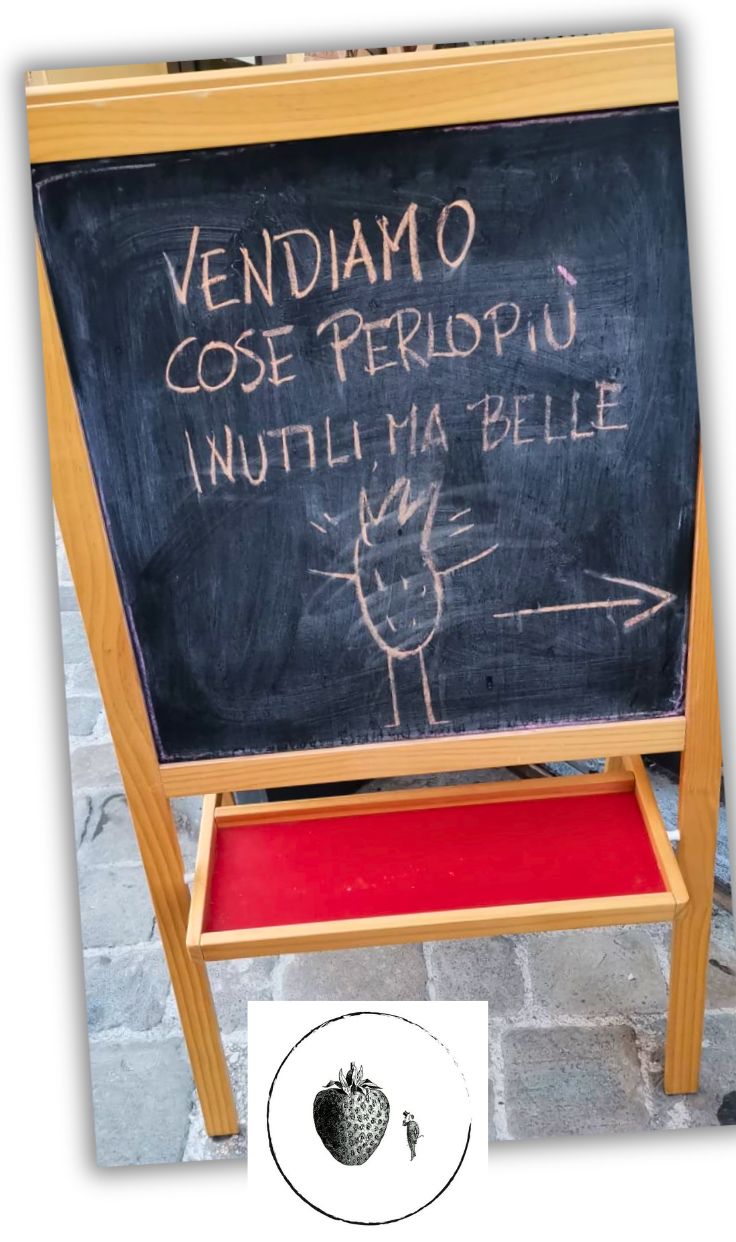 VENDIAMO
COSE PERLOPIÙ
INUTILI, MA BELLE